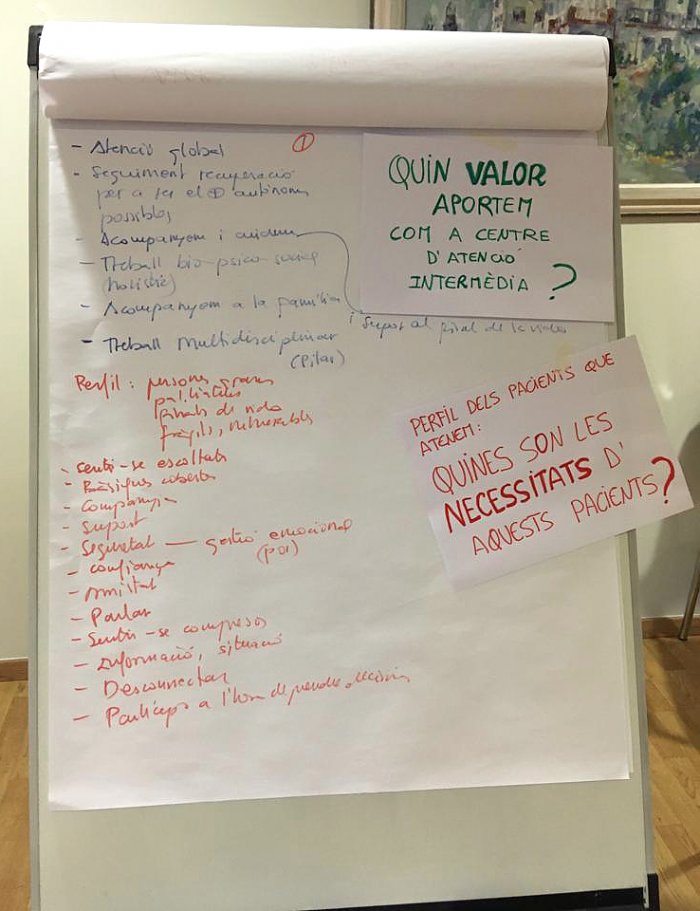 ①
- Atenció global
- Seguiment recuperació
per a ser el ⊕ autònoms
possibles
- Acompanyem i cuidem
i suport al final de la vida
- Treball bio-psico-social
(holistic)
- Acompanyem a la família
- Treball Multidisciplinar
(Pilar)
QUIN VALOR
APORTEM
COM A CENTRE
D'ATENCIÓ
INTERMÈDIA ?
Perfil: persones grans
pal·liatius
finals de vida
fràgils, vulnerables
- sentir-se escoltats
- Bàsiques cobertes
- Companyia
- Suport
- Seguretat — gestió emocional
(por)
- confiança
- Amistat
- Parlar
- Sentir-se compresos
- Informació, situació
- Desconnectar
- Partícips a l'hora de prendre decisions
PERFIL DELS PACIENTS QUE
ATENEM:
QUINES SON LES
NECESSITATS D'
AQUESTS PACIENTS?